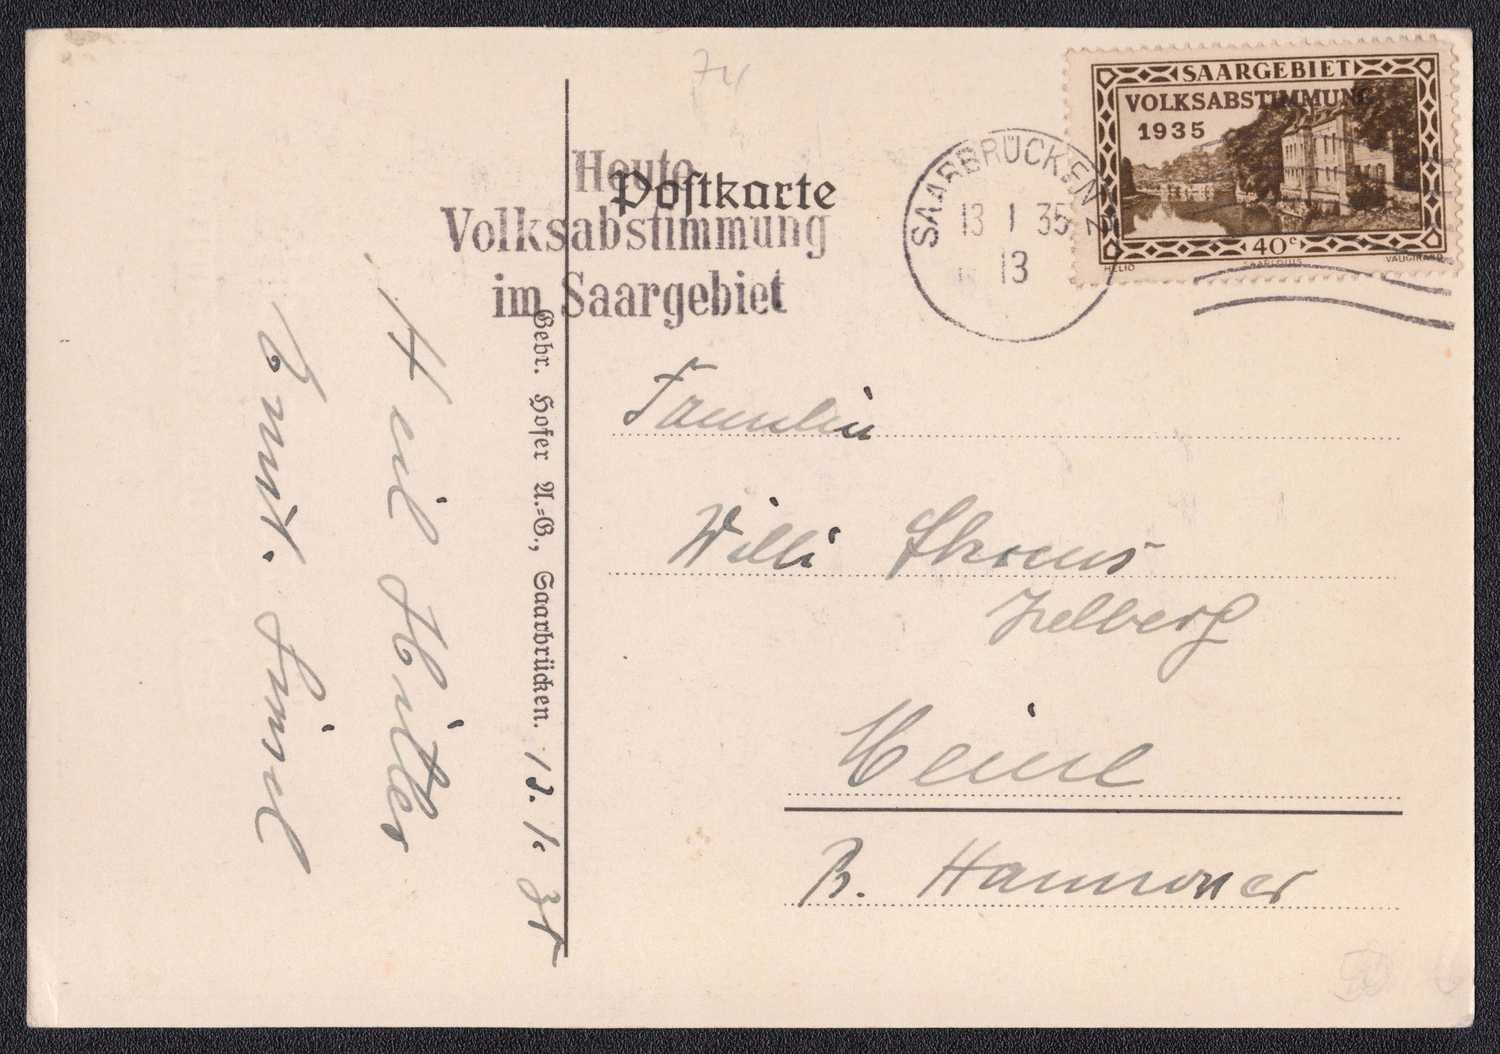 SAARGEBIET
VOLKSABSTIMMUNG
1935
40c
HELIO
SAARLOUIS
VAUGIRARD
SAARBRÜCKEN 2
13 1 35
13
Heute
Volksabstimmung
im Saargebiet
Postkarte
Gebr. Hofer A.=G., Saarbrücken.
13. 1. 35
Heil Hitler
Familie
Willi
Heine
B. Hannover
74